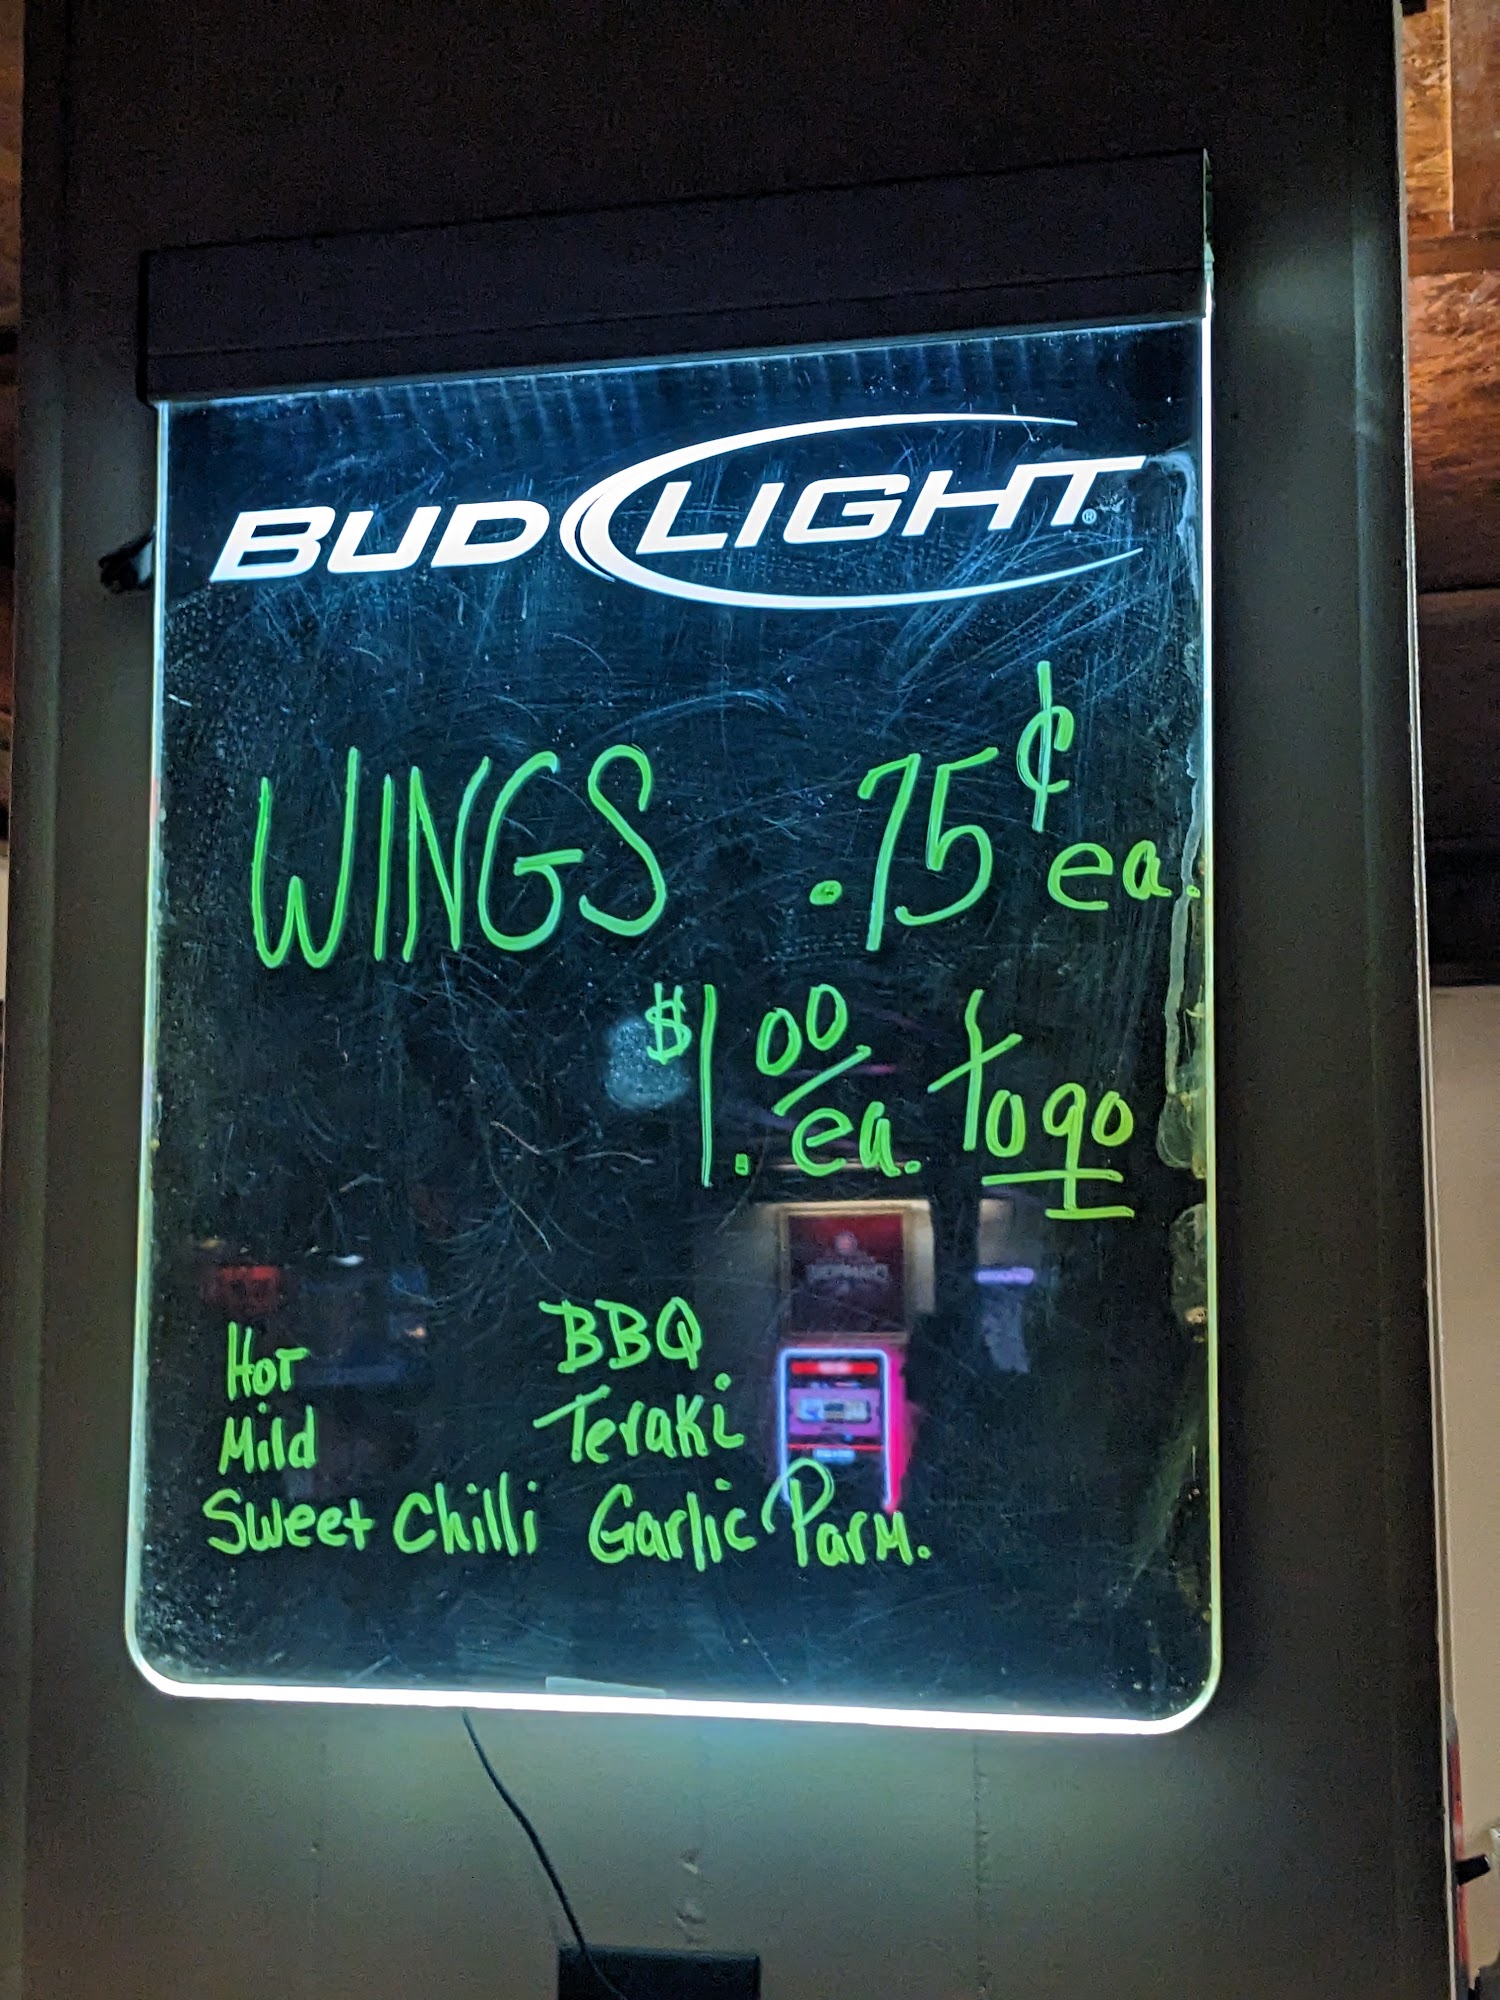 BUD LIGHT®
WINGS .75¢ ea.
$1.00 ea. to go
Hot BBQ
Mild Teraki
Sweet Chilli Garlic Parm.